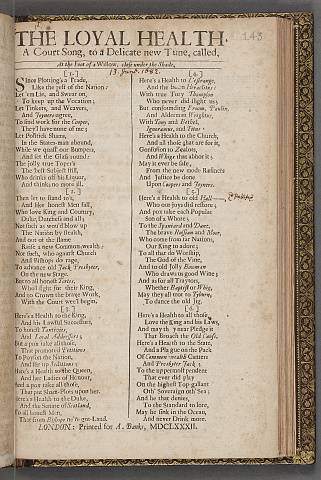 THE LOYAL HEALTH.
143
A Court Song, to a Delicate new Tune, called,
At the Foot of a Willow, close under the Shade,
13. June. 1682.
[1.]
Since Plotting's a Trade,
Like the rest of the Nation:
Let 'em Lie, and Swear on,
To keep up the Vocation;
Let Tinkers, and Weavers,
And Joyners agree,
To find work for the Cooper,
They'l have none of me;
Let Politick Shams,
In the States-man abound,
While we quaff our Bumpers,
And set the Glass round:
The jolly true Toper's
The best Subject still,
Who drinks off his Liquor,
And thinks no more ill.
[2.]
Then let us stand to't,
And like honest Men fall,
Who love King and Country,
Duke, Dutchess and all;
Not such as wou'd blow up
The Nation by stealth,
And out of the flame
Raise a new Commonwealth:
Not such, who against Church
And Bishops do rage,
To advance old Jack Presbyter,
On the new Stage.
But to all honest Tories,
Who'l fight for their King,
And to Crown the brave Work,
With the Court we'l begin.
[3.]
Here's a Health to the King,
And his Lawful Successors,
To honest Tantivies,
And Loyal Addressers;
But a pox take all those,
That promoted Petitions
To Poyson the Nation,
And stir up Seditions:
Here's a Health to the Queen,
And her Ladies of Honour,
And a pox take all those,
That put Sham-Plots upon her.
Here's a Health to the Duke,
And the Senate of Scotland,
To all honest Men,
That from Bishops ne're got Land.
[4.]
Here's a Health to L'estrange,
And the
With true Tory Thompson
Who never did slight us;
But confounding Froom,
And Alderman
With Tony and Bethel,
Ignoramus, and Titus.
Here's a Health to the Church,
And all those that are for it,
Confusion to Zealots,
And Whigs that abhor it:
May it ever be safe,
From the new mode Refiners
And Justice be done
Upon Coopers and Joyners.
[5.]
Here's a Health to old Hall
Who our Joys did restore;
And pox take each Popular
Son of a Whore;
To the Spaniard and Dane,
The brave Russian and Moor,
Who come from far Nations,
Our King to adore;
To all that do Worship,
The God of the Vine,
And to old Jolly Bowman
Who draws us good Wine;
And as for all Traytors,
Whether Baptist or Whig,
May they all trot to Tyburn,
To dance the old Jig.
[6.]
Here's a Health to all those,
Love the King and his Laws,
And may they near Pledge it
That Broach the Old Cause.
Here's a Health to the State,
And a Plague on the Pack
Of Commonwealth Canters
And Presbyter Jack;
To the uppermost pendent
That ever did play
On the highest Top-gallant
Oth' Soveraign oth' Sea;
And he that denies,
To the Standard to lore,
May he sink in the Ocean,
And never Drink more.
LONDON: Printed for A. Banks, MDCLXXXII.